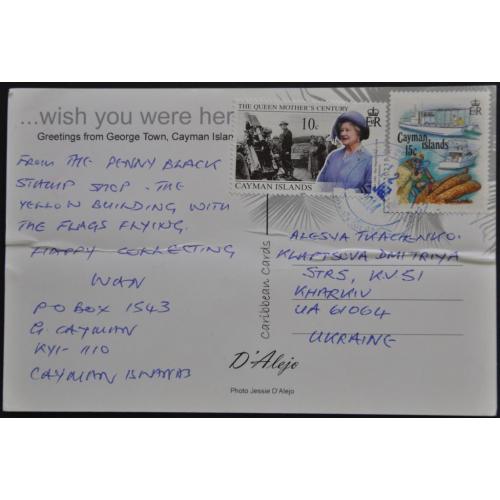 ...wish you were her
Greetings from George Town, Cayman Islan
THE QUEEN MOTHER'S CENTURY
10c
E R
CAYMAN ISLANDS
E R
Cayman
islands
15c
FROM THE PENNY BLACK
STAMP SHOP. THE
YELLOW BUILDING WITH
THE FLAGS FLYING.
HAPPY COLLECTING
IVAN
PO BOX 1543
G. CAYMAN
KY1-1110
CAYMAN ISLANDS
Caribbean Cards
ALESYA TKACHENKO.
KLAPTSOVA DMITRIYA
STR5, KV51
KHARKIV
UA 61064
UKRAINE
D'Alejo
Photo Jessie D'Alejo